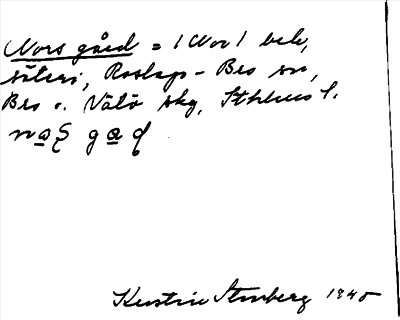 Nors gård = /Nor/ beb,
säteri, Roslags-Bro sn,
Bro o. Vätö skg, Sthlms l.
Kerstin Stenberg 1940